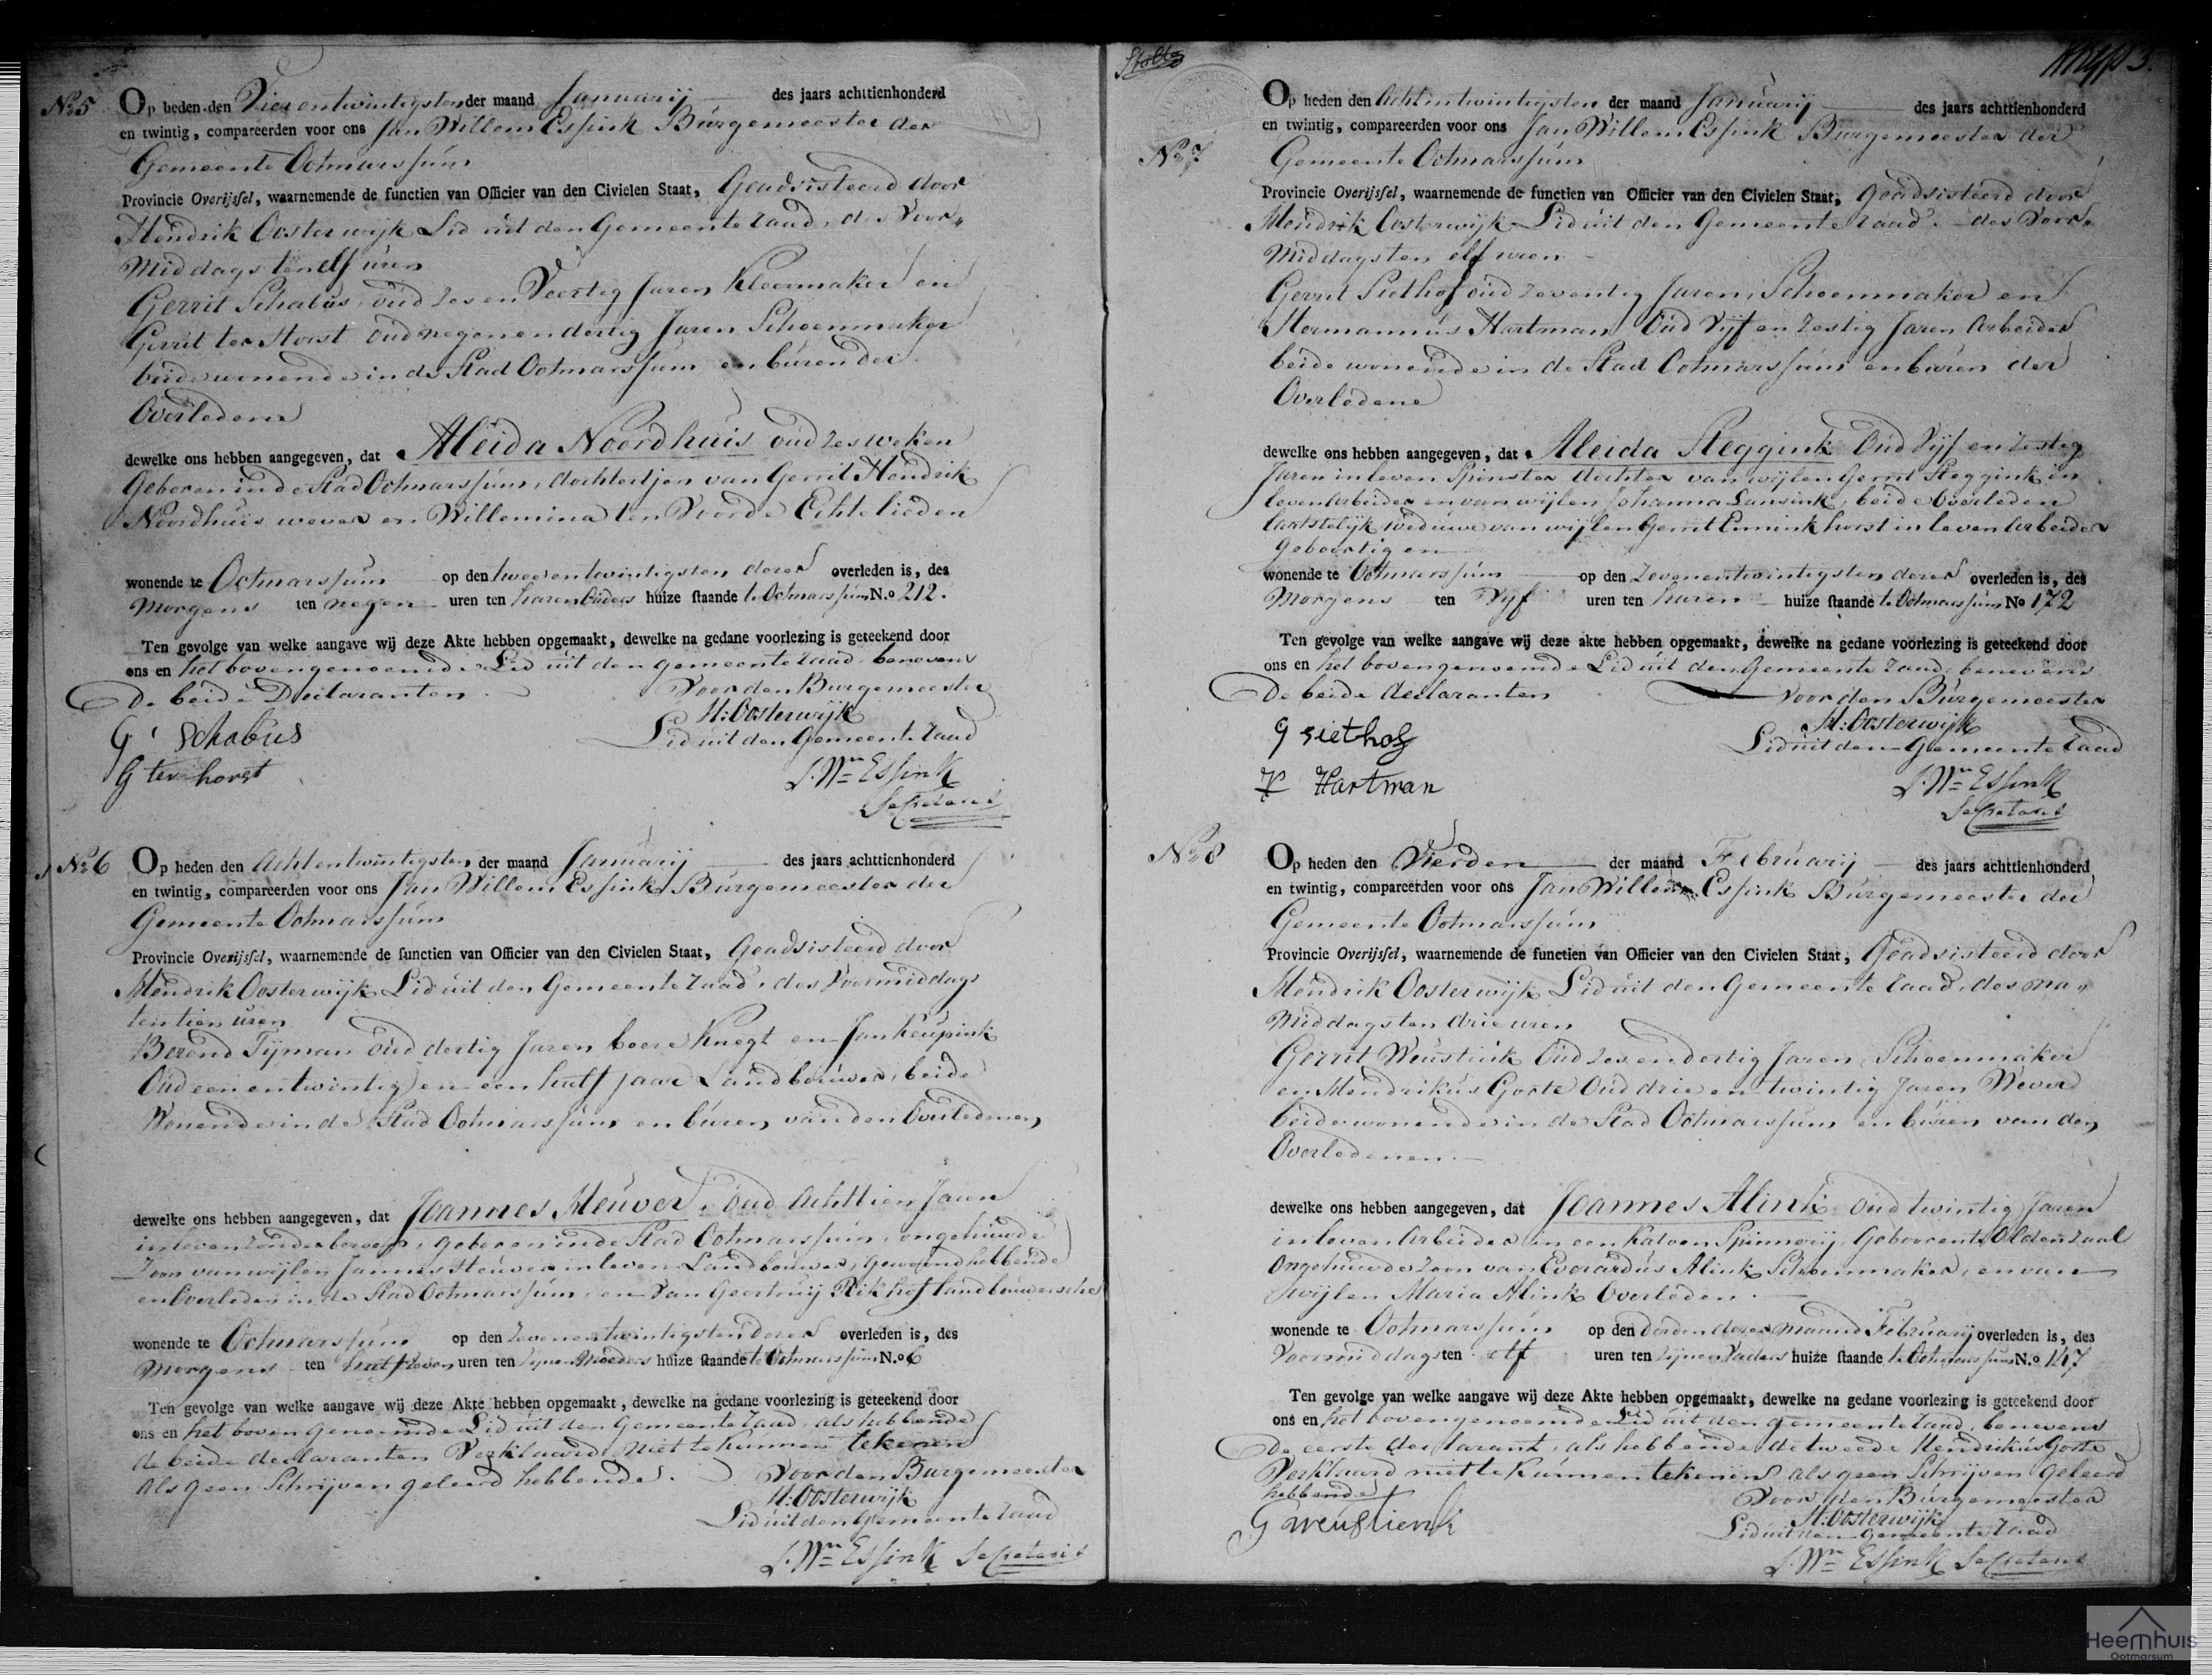 No 5
Op heden den Vierentwintigsten der maand Januarij des jaars achttienhonderd
en twintig, compareerden voor ons Jan Willem Essink Burgemeester der
Gemeente Ootmarssum
Provincie Overijssel, waarnemende de functien van Officier van den Civielen Staat, Geadsisteerd door
Hendrik Oosterwijk Lid uit den Gemeente raad, des Voor„
Middags ten elf uren
Gerrit Schabus oud zes en Veertig Jaren Kleermaker en
Gerrit ter Horst oud negenendertig Jaren Schoenmaker
beide wonende in de Stad Ootmarssum en buren der
Overledene
dewelke ons hebben aangegeven, dat Aleida Noordhuis oud zes weken
Geboren in de Stad Ootmarssum, dochtertjen van Gerrit Hendrik
Noordhuis wever en Willemina ten Voorde Echtelieden
wonende te Ootmarssum op den tweeentwintigsten dezer overleden is, des
Morgens ten negen uren ten haren Ouders huize staande te Ootmarssum N.o 212.
Ten gevolge van welke aangave wij deze Akte hebben opgemaakt, dewelke na gedane voorlezing is geteekend door
ons en het bovengenoemde Lid uit den gemeente raad, benevens
De beide Declaranten
Voor den Burgemeester
H: Oosterwijk
Lid uit den Gemeente raad
G Schabus
G ter horst
J. Wm Essink
Secretaris
No 6
Op heden den Achtentwintigsten der maand Januarij des jaars achttienhonderd
en twintig, compareerden voor ons Jan Willem Essink Burgemeester der
Gemeente Ootmarssum
Provincie Overijssel, waarnemende de functien van Officier van den Civielen Staat, Geadsisteerd door
Hendrik Oosterwijk Lid uit den Gemeente raad, des Voormiddags
ten tien uren
Berend Tijman oud dertig Jaren boere Knegt en Jan Keupink
Oud eenentwintig en een half jaar Landbouwer, beide
Wonende in de Stad Ootmarssum en buren van den Overledenen
dewelke ons hebben aangegeven, dat Joannes Meuver, oud Achttien Jaren
in leven zonder beroep, geboren in de Stad Ootmarssum, ongehuwde
Zoon van wijlen Jannes Meuver in leven Landbouwer, gewoond hebbende
en Overleden in de Stad Ootmarssum, en Van Geertruij Rikhof landbouwersche
wonende te Ootmarssum op den Zevenentwintigsten dezer overleden is, des
Morgens ten half zeven uren ten zijner Moeders huize staande te Ootmarssum N.o 6
Ten gevolge van welke aangave wij deze Akte hebben opgemaakt, dewelke na gedane voorlezing is geteekend door
ons en het boven genoemde Lid uit den Gemeente raad, als hebbende
de beide declaranten Verklaard niet te kunnen tekenen
als geen Schrijven geleerd hebbende.
Voor den Burgemeester
H: Oosterwijk
Lid uit den Gemeente raad
J. Wm Essink Secretaris
No 7
Op heden den Achtentwintigsten der maand Januarij des jaars achttienhonderd
en twintig, compareerden voor ons Jan Willem Essink Burgemeester der
Gemeente Ootmarssum
Provincie Overijssel, waarnemende de functien van Officier van den Civielen Staat, Geadsisteerd door
Hendrik Oosterwijk Lid uit den Gemeente raad. des Voor„
Middags ten elf uren
Gerrit Siethof oud zeventig Jaren, Schoenmaker en
Hermannus Hartman Oud Vijf en zestig Jaren Arbeider
beide wonende in de Stad Ootmarssum en buren der
Overledene
dewelke ons hebben aangegeven, dat Aleida Steggink Oud Vijf en zestig
Jaren in leven Spinster dochter van wijlen Gerrit Steggink in
leven Arbeider en van wijlen Johanna Lansink, beide Overleden
laatstelijk weduwe van wijlen Gerrit Ennink horst in leven Arbeider
Geboortig en
wonende te Ootmarssum op den Zevenentwintigsten dezer overleden is, des
Morgens ten Vijf uren ten haren huize staande te Ootmarssum No 172
Ten gevolge van welke aangave wij deze akte hebben opgemaakt, dewelke na gedane voorlezing is geteekend door
ons en het bovengenoemde Lid uit den Gemeente raad, benevens
De beide declaranten
Voor den Burgemeester
H: Oosterwijk
Lid uit den Gemeente raad
G siethof
H Hartman
J. Wm Essink
Secretaris
No 8
Op heden den Vierden der maand Februarij des jaars achttienhonderd
en twintig, compareerden voor ons Jan Willem Essink Burgemeester der
Gemeente Ootmarssum
Provincie Overijssel, waarnemende de functien van Officier van den Civielen Staat, Geadsisteerd door
Hendrik Oosterwijk Lid uit den Gemeente raad, des na„
Middags ten drie uren
Gerrit Weustink Oud zes en dertig Jaren, Schoenmaker
en Hendrikus Gorte Oud drie en twintig Jaren Wever
beide wonende in de Stad Ootmarssum en buren van den
Overledenen.
dewelke ons hebben aangegeven, dat Joannes Alink oud twintig Jaren
in leven Arbeider in een Katoen Spinnerij, Geboren te Oldenzaal
Ongehuwde Zoon van Everardus Alink Schoenmaker, en van
wijlen Maria Alink Overleden.
wonende te Ootmarssum op den derden dezer maand Februarij overleden is, des
Voormiddags ten elf uren ten zijner Vaders huize staande te Ootmarssum N.o 147
Ten gevolge van welke aangave wij deze Akte hebben opgemaakt, dewelke na gedane voorlezing is geteekend door
ons en het bovengenoemde Lid uit den gemeente raad, benevens
De eerste declarant, als hebbende de tweede Hendrikus Gorte
Verklaard niet te kunnen tekenen als geen Schrijven geleerd
hebbende
Voor den Burgemeester
H: Oosterwijk
Lid uit den Gemeente raad
G weustienk
J. Wm Essink Secretaris
Heemhuis
Ootmarsum